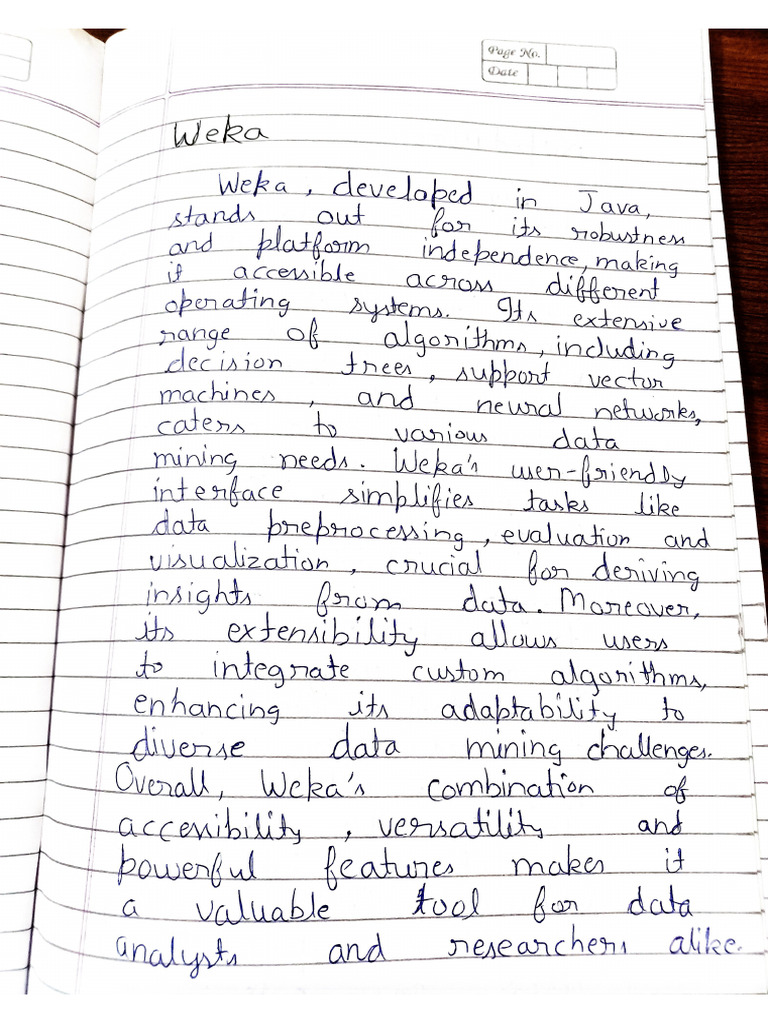 Page No.
Date
Weka
Weka, developed in Java,
stands out for its robustness
and platform independence, making
it accessible across different
operating systems. Its extensive
range of algorithms, including
decision trees, support vector
machines, and neural networks,
caters to various data
mining needs. Weka's user-friendly
interface simplifies tasks like
data preprocessing, evaluation and
visualization, crucial for deriving
insights from data. Moreover,
its extensibility allows users
to integrate custom algorithms,
enhancing its adaptability to
diverse data mining challenges.
Overall, Weka's combination of
accessibility, versatility and
powerful features makes it
a valuable tool for data
analysts and researchers alike.